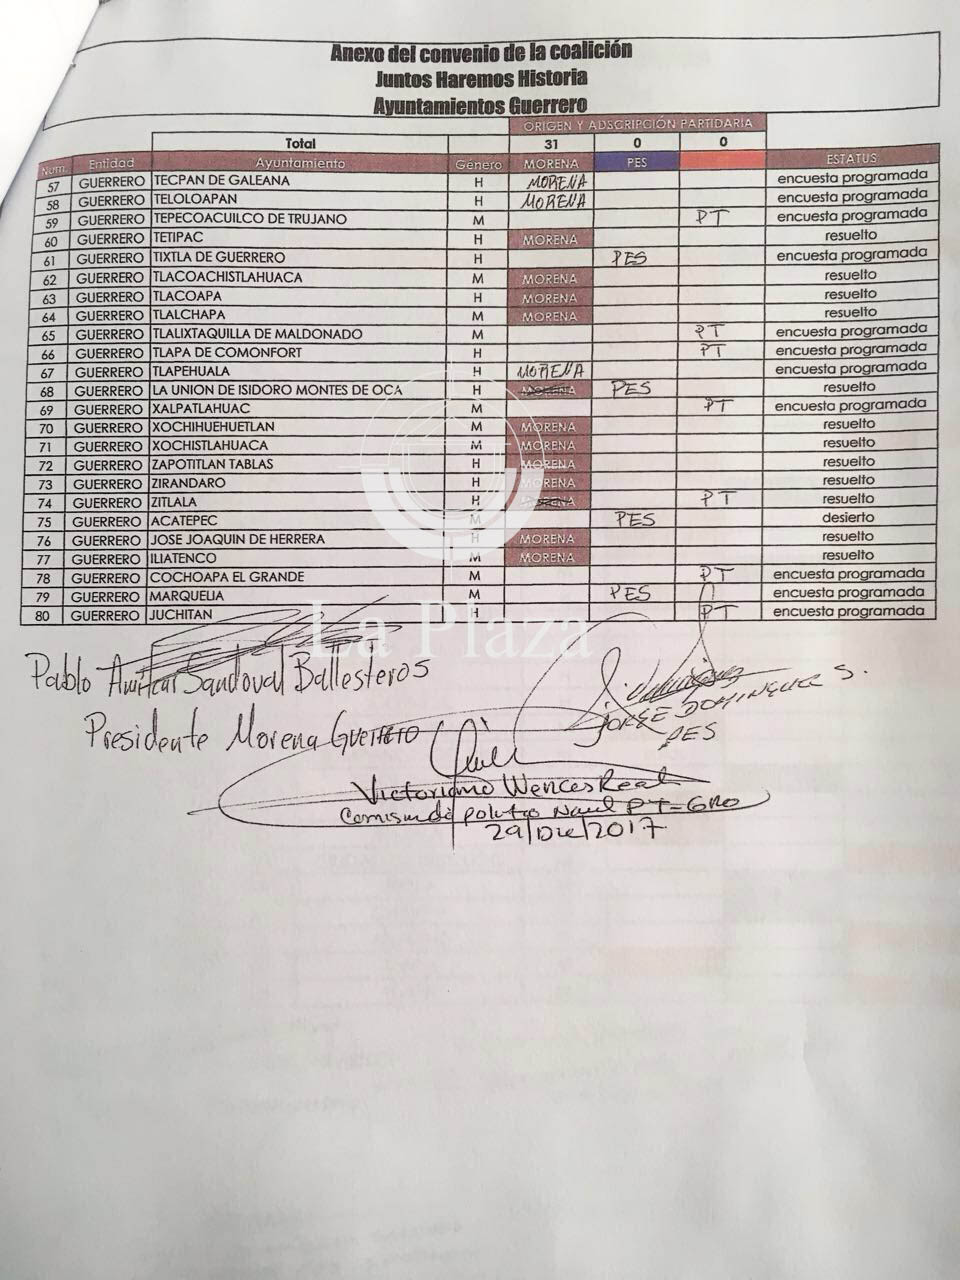 Anexo del convenio de la coalición
Juntos Haremos Historia
Ayuntamientos Guerrero
ORIGEN Y ADSCRIPCIÓN PARTIDARIA
Total 31 0 0
Num. Entidad Ayuntamiento Género MORENA PES ESTATUS
57 GUERRERO TECPAN DE GALEANA H MORENA encuesta programada
58 GUERRERO TELOLOAPAN H MORENA encuesta programada
59 GUERRERO TEPECOACUILCO DE TRUJANO M PT encuesta programada
60 GUERRERO TETIPAC H MORENA resuelto
61 GUERRERO TIXTLA DE GUERRERO H PES encuesta programada
62 GUERRERO TLACOACHISTLAHUACA M MORENA resuelto
63 GUERRERO TLACOAPA H MORENA resuelto
64 GUERRERO TLALCHAPA M MORENA resuelto
65 GUERRERO TLALIXTAQUILLA DE MALDONADO M PT encuesta programada
66 GUERRERO TLAPA DE COMONFORT H PT encuesta programada
67 GUERRERO TLAPEHUALA H MORENA encuesta programada
68 GUERRERO LA UNION DE ISIDORO MONTES DE OCA H MORENA PES resuelto
69 GUERRERO XALPATLAHUAC M PT encuesta programada
70 GUERRERO XOCHIHUEHUETLAN M MORENA resuelto
71 GUERRERO XOCHISTLAHUACA M MORENA resuelto
72 GUERRERO ZAPOTITLAN TABLAS H MORENA resuelto
73 GUERRERO ZIRANDARO H MORENA resuelto
74 GUERRERO ZITLALA H MORENA PT resuelto
75 GUERRERO ACATEPEC M PES desierto
76 GUERRERO JOSE JOAQUIN DE HERRERA H MORENA resuelto
77 GUERRERO ILIATENCO M MORENA resuelto
78 GUERRERO COCHOAPA EL GRANDE M PT encuesta programada
79 GUERRERO MARQUELIA M PES encuesta programada
80 GUERRERO JUCHITAN H PT encuesta programada
La Plaza
Pablo Amilcar Sandoval Ballesteros
Presidente Morena Guerrero
JORGE DOMINGUEZ S.
PES
Victoriano Wences Real
PT=GRO
29/Dic/2017